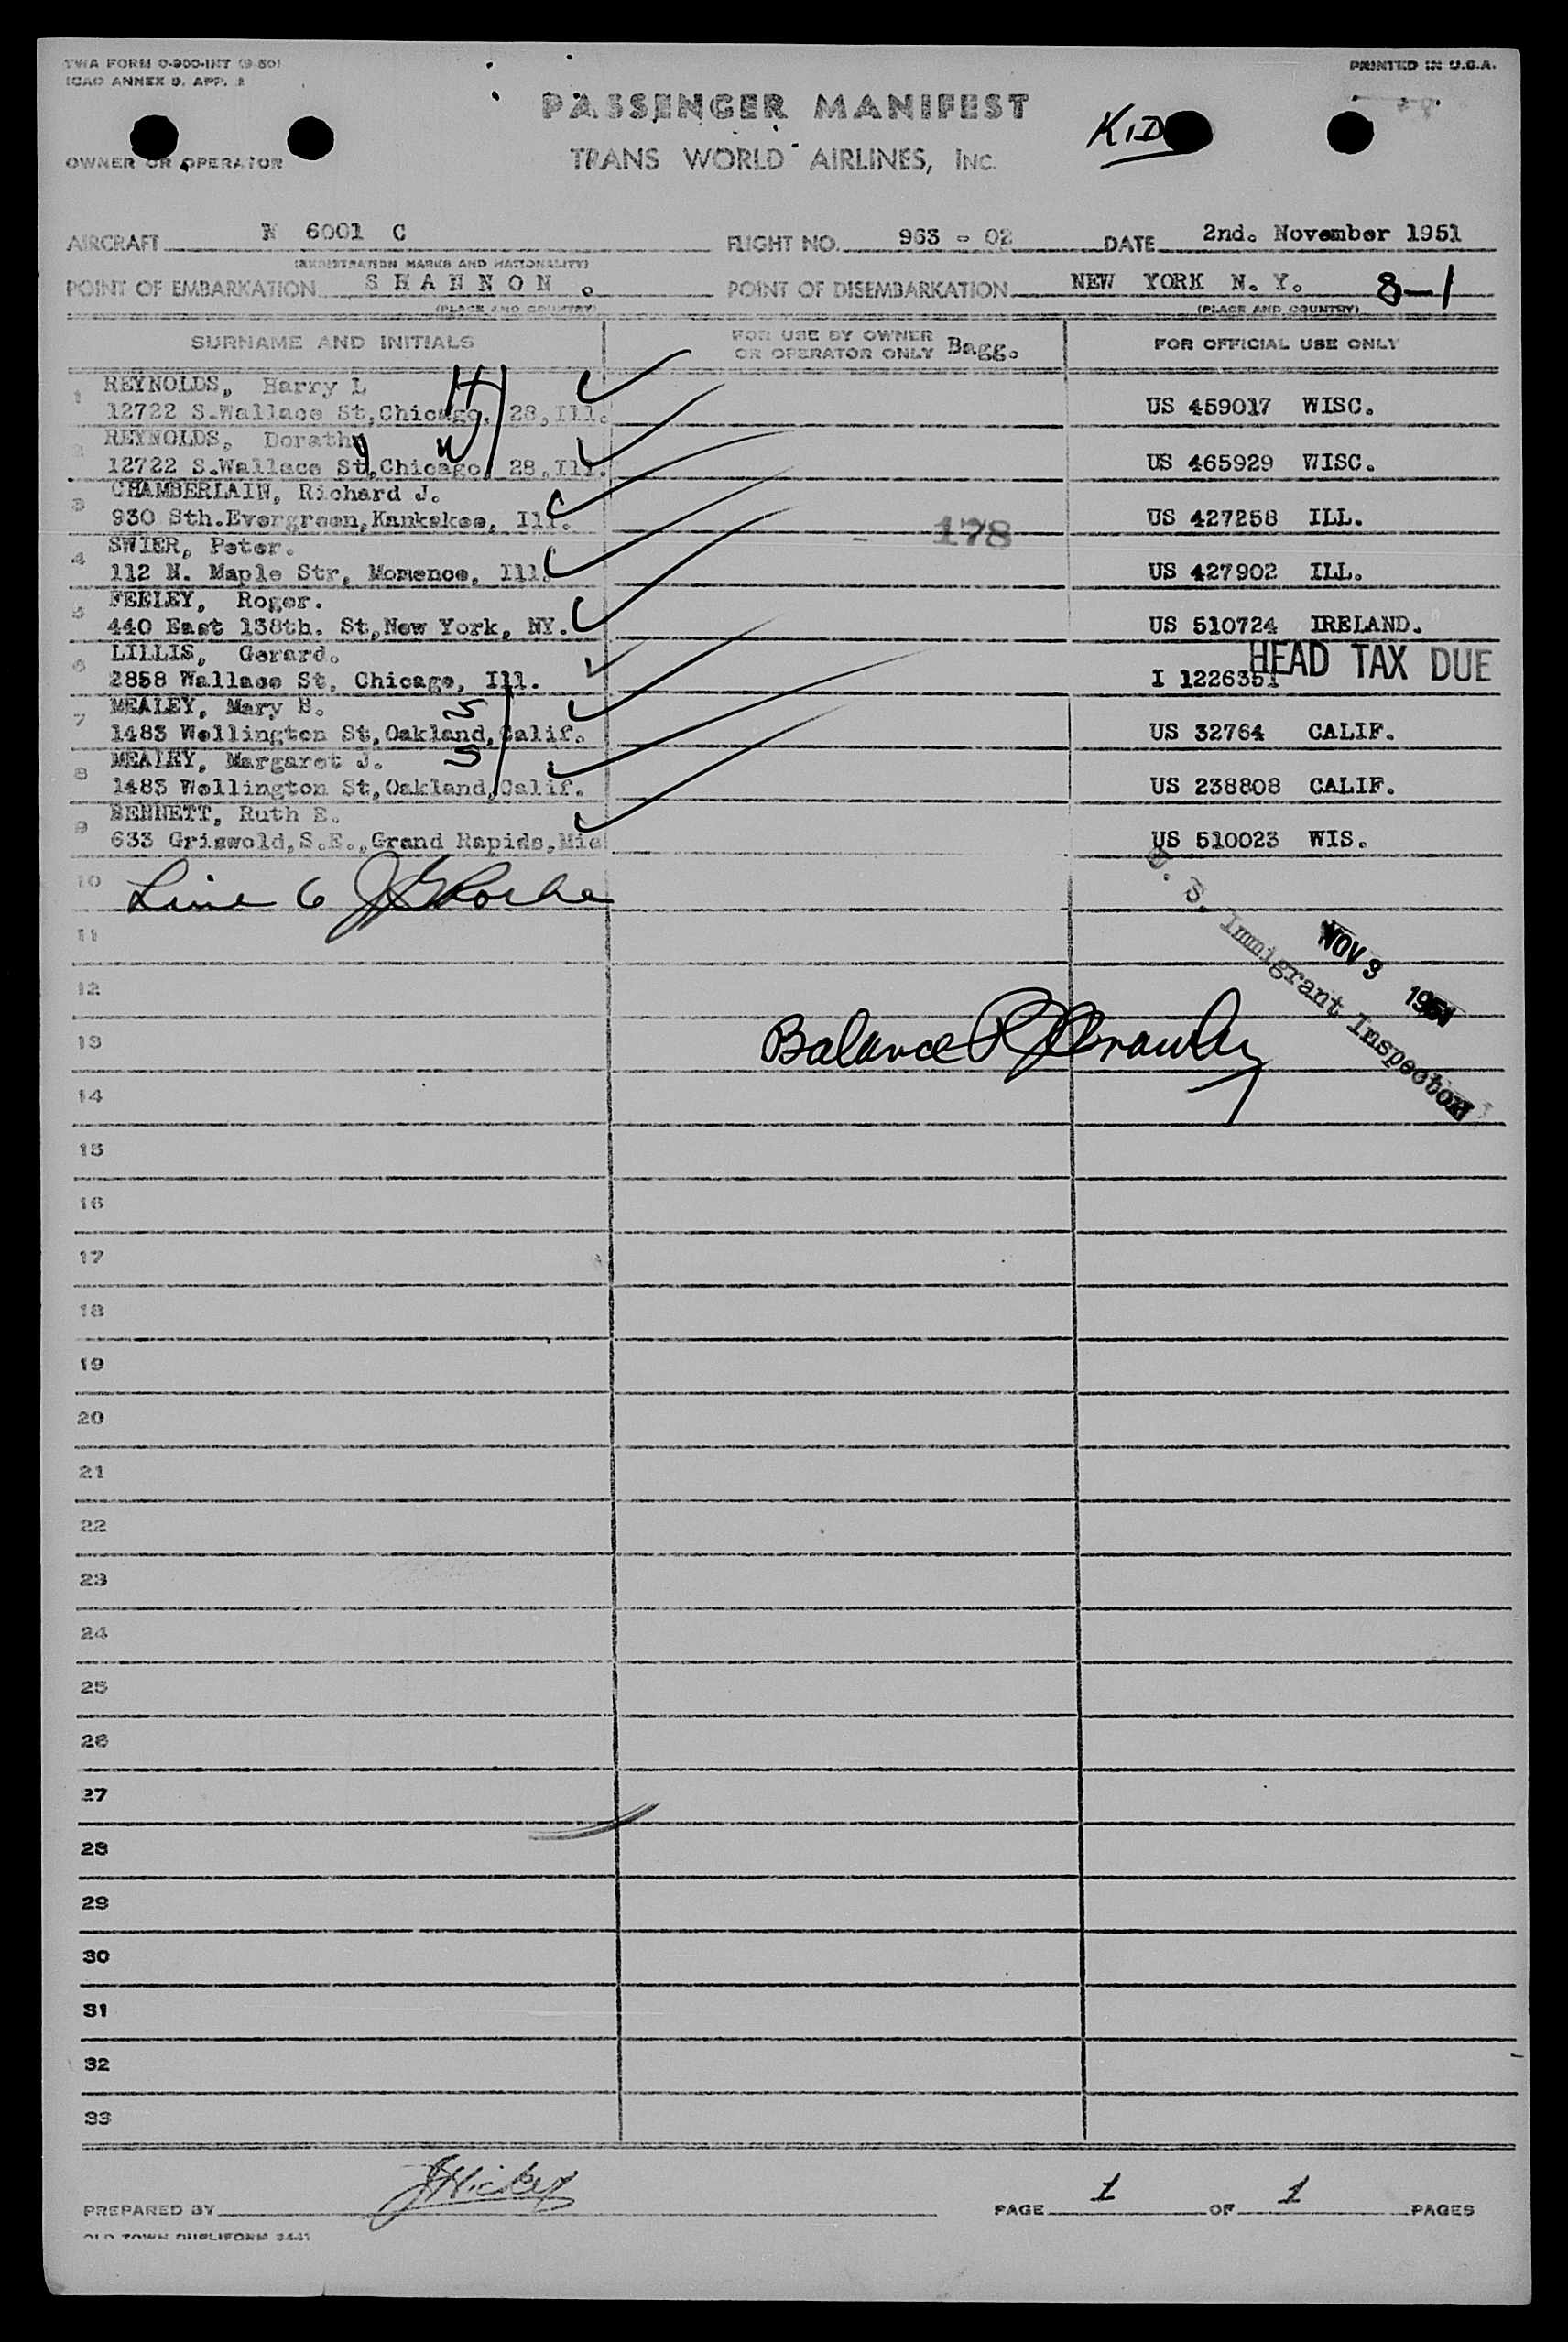 TWA FORM O-900-INT (9-50)
ICAO ANNEX 9, APP. 2
PRINTED IN U.S.A.
PASSENGER MANIFEST
KID
OWNER OR OPERATOR
TRANS WORLD AIRLINES, INC.
AIRCRAFT N 6001 C FLIGHT NO. 963 - 02 DATE 2nd. November 1951
(REGISTRATION MARKS AND NATIONALITY)
POINT OF EMBARKATION S H A N N O N . POINT OF DISEMBARKATION NEW YORK N. Y. 8-1
(PLACE AND COUNTRY) (PLACE AND COUNTRY)
SURNAME AND INITIALS FOR USE BY OWNER OR OPERATOR ONLY Bagg. FOR OFFICIAL USE ONLY
1 REYNOLDS, Harry L H
12722 S.Wallace St,Chicago, 28,Ill. US 459017 WISC.
2 REYNOLDS, Dorathy W
12722 S.Wallace St,Chicago, 28,Ill. US 465929 WISC.
3 CHAMBERLAIN, Richard J.
930 Sth.Evergreen,Kankakee, Ill. 178 US 427258 ILL.
4 SWIER, Peter.
112 N. Maple Str, Momence, Ill. US 427902 ILL.
5 FEELEY, Roger.
440 East 138th. St,New York, NY. US 510724 IRELAND.
6 LILLIS, Gerard. HEAD TAX DUE
2858 Wallace St, Chicago, Ill. I 1226351
7 MEALEY, Mary B. S
1483 Wellington St,Oakland,Calif. US 32764 CALIF.
8 MEALEY, Margaret J. S
1483 Wellington St,Oakland,Calif. US 238808 CALIF.
9 BENNETT, Ruth E.
633 Griswold,S.E.,Grand Rapids,Mic US 510023 WIS.
10 Line 6
11
U. S. Immigrant Inspector
NOV 3 1951
12
13 Balance
14
15
16
17
18
19
20
21
22
23
24
25
26
27
28
29
30
31
32
33
PREPARED BY J Hickey PAGE 1 OF 1 PAGES
OLD TOWN DUPLIFORM 3441